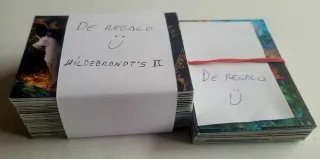 DE REGALO
HILDEBRANDT'S II
DE REGALO